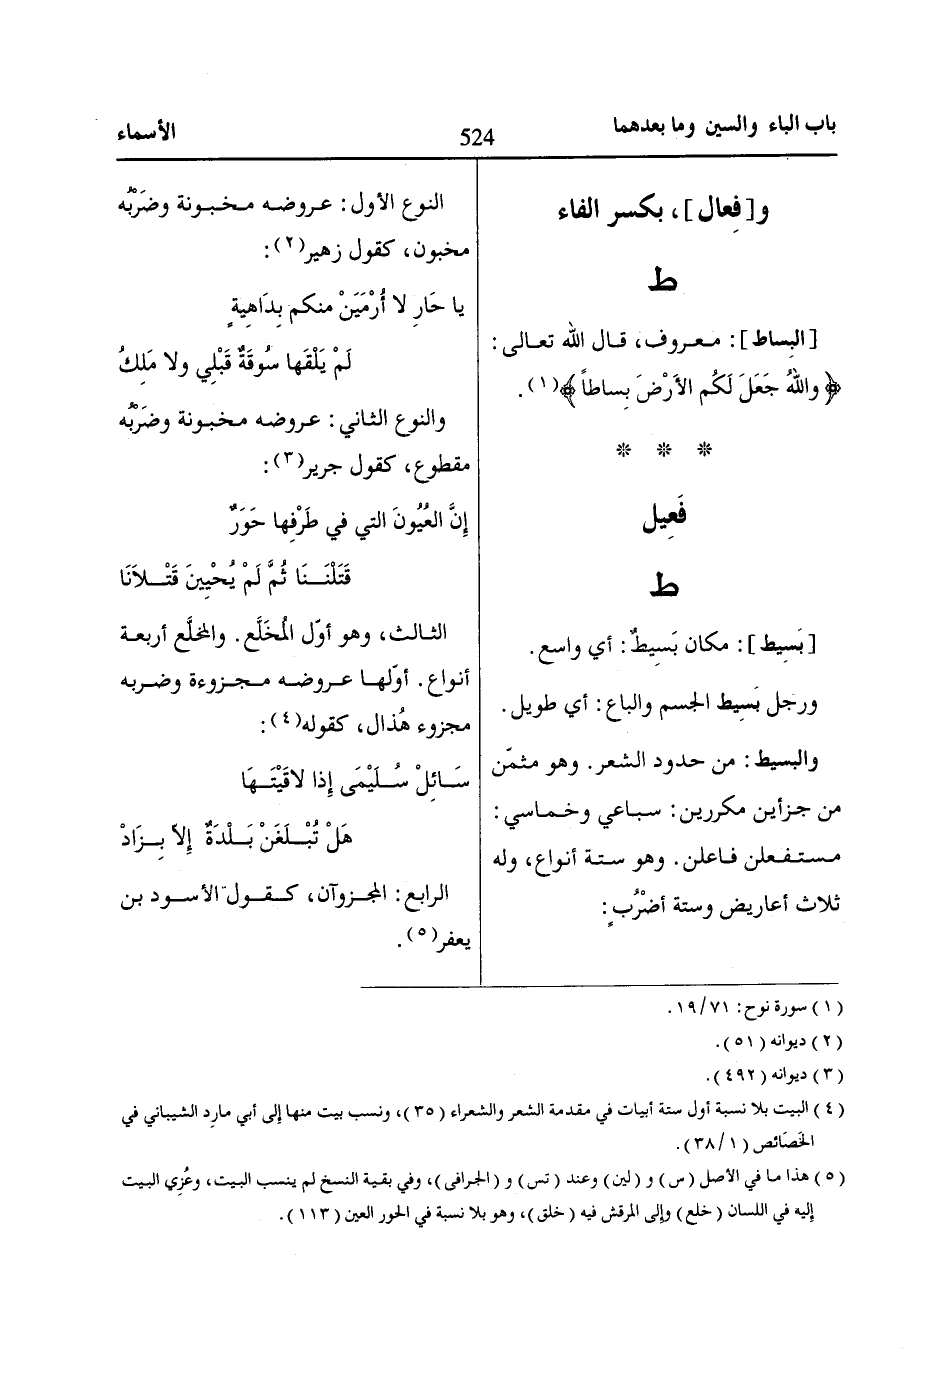 باب الباء والسين وما بعدهما
524
الأسماء
و[فِعال]، بكسر الفاء
ط
[البِساط]: معروف، قال الله تعالى:
﴿واللهُ جَعَلَ لَكُم الأَرْضَ بِساطاً﴾(١).
* * *
فَعِيل
ط
[بَسِيط]: مكان بَسِيطٌ: أي واسع.
ورجل بَسِيط الجسم والباع: أي طويل.
والبسيط: من حدود الشعر. وهو مثمّن
من جزأين مكررين: سباعي وخماسي:
مستفعلن فاعلن. وهو ستة أنواع، وله
ثلاث أعاريض وستة أضْرُبٍ:
النوع الأول: عروضه مخبونة وضَرْبُه
مخبون، كقول زهير(٢):
يا حَارِ لا أُرْمَيَنْ منكم بِدَاهِيةٍ
لَمْ يَلْقَها سُوقَةٌ قَبْلِي ولا مَلِكُ
والنوع الثاني: عروضه مخبونة وضَرْبُه
مقطوع، كقول جرير(٣):
إِنَّ العُيُونَ التي في طَرْفِها حَوَرٌ
قَتَلْنَنَا ثُمَّ لَمْ يُحْيِينَ قَتْلاَنَا
الثالث، وهو أوّل المُخَلَّع. والمخلَّع أربعة
أنواع. أوّلها عروضه مجزوءة وضربه
مجزوء مُذال، كقوله(٤):
سَائِلْ سُلَيْمَى إِذا لاقَيْتَهَا
هَلْ تُبْلَغَنْ بَلْدَةٌ إِلاّ بِزَادْ
الرابع: المجزوآن، كقول الأسود بن
يعفر(٥).
(١) سورة نوح: ١٩/٧١.
(٢) ديوانه (٥١).
(٣) ديوانه (٤٩٢).
(٤) البيت بلا نسبة أول ستة أبيات في مقدمة الشعر والشعراء (٣٥)، ونسب بيت منها إلى أبي مارِد الشيباني في
الخَصَائص (٣٨/١).
(٥) هذا ما في الأصل (س) و (لين) وعند (تس) و (الجرافي)، وفي بقية النسخ لم ينسب البيت، وعُزِي البيت
إليه في اللسان (خلع) وإلى المرقش فيه (خلق)، وهو بلا نسبة في الحور العين (١١٣).